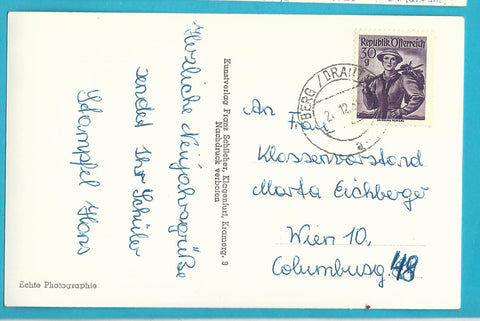 Herzliche Neujahrsgrüße
sendet Ihr Schüler
Stampfel Hans
Echte Photographie
Kunstverlag Franz Schilcher, Klagenfurt, Kramerg. 9
Nachdruck verboten
Republik Österreich
30
g
BERG /DRAU
2. 12.
a
An Frau
Klassenvorstand
Marta Eichberger
Wien 10,
Columbusg. 48